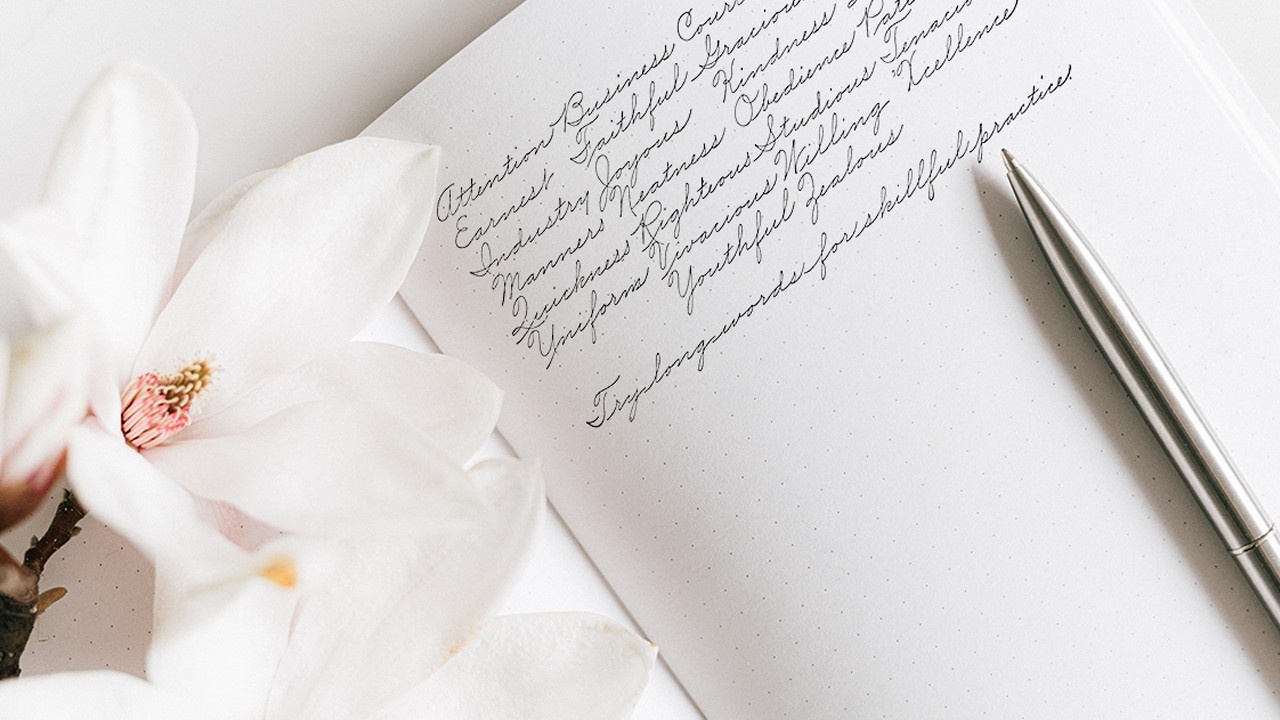 Attention Business
Earnest Faithful
Industry Joyous Kindness
Manners Neatness Obedience
Quickness Righteous Studious
Uniform Vivacious Willing 'Xcellence
Youthful Zealous
Try long words for skillful practice.